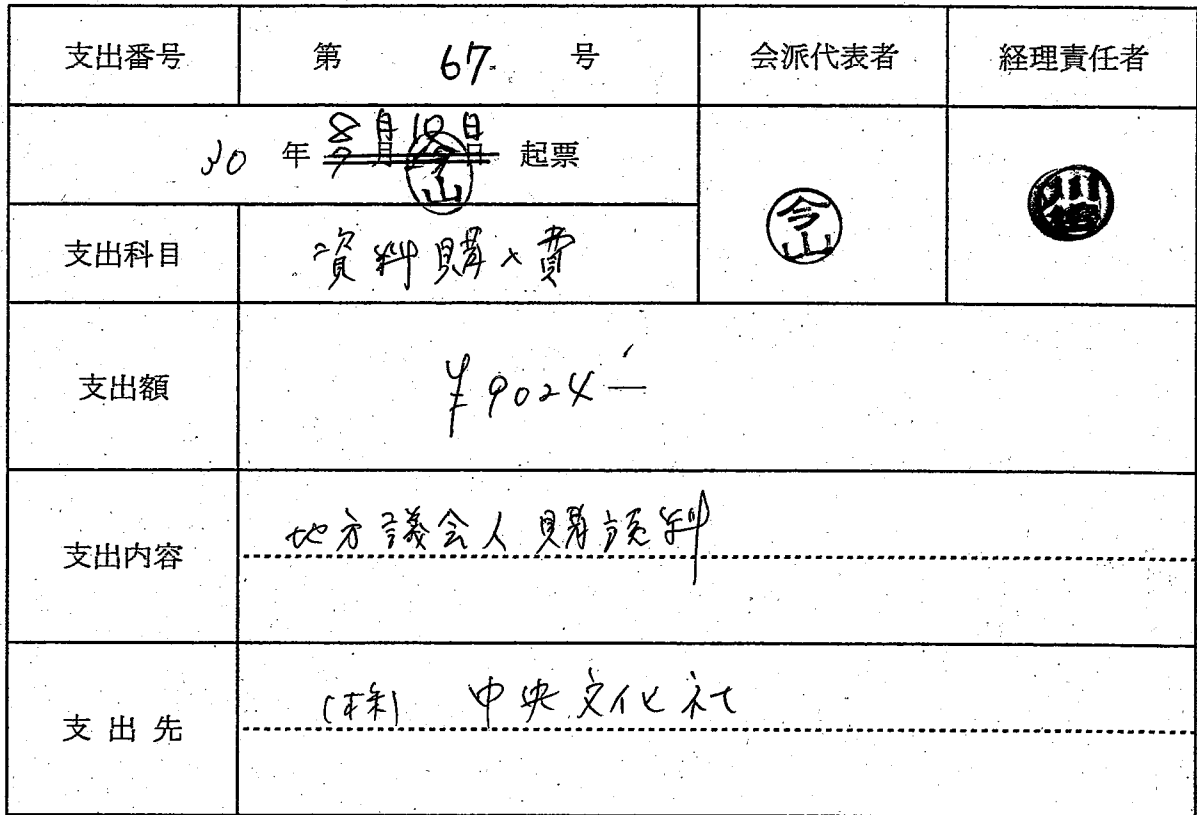 支出番号 第 67 号 会派代表者 経理責任者
8月10日
30 年 月 日 起票
今山
今山
支出科目 資料購入費
支出額 ¥9024-
支出内容 地方議会人購読料
支出先 (株) 中央文化社